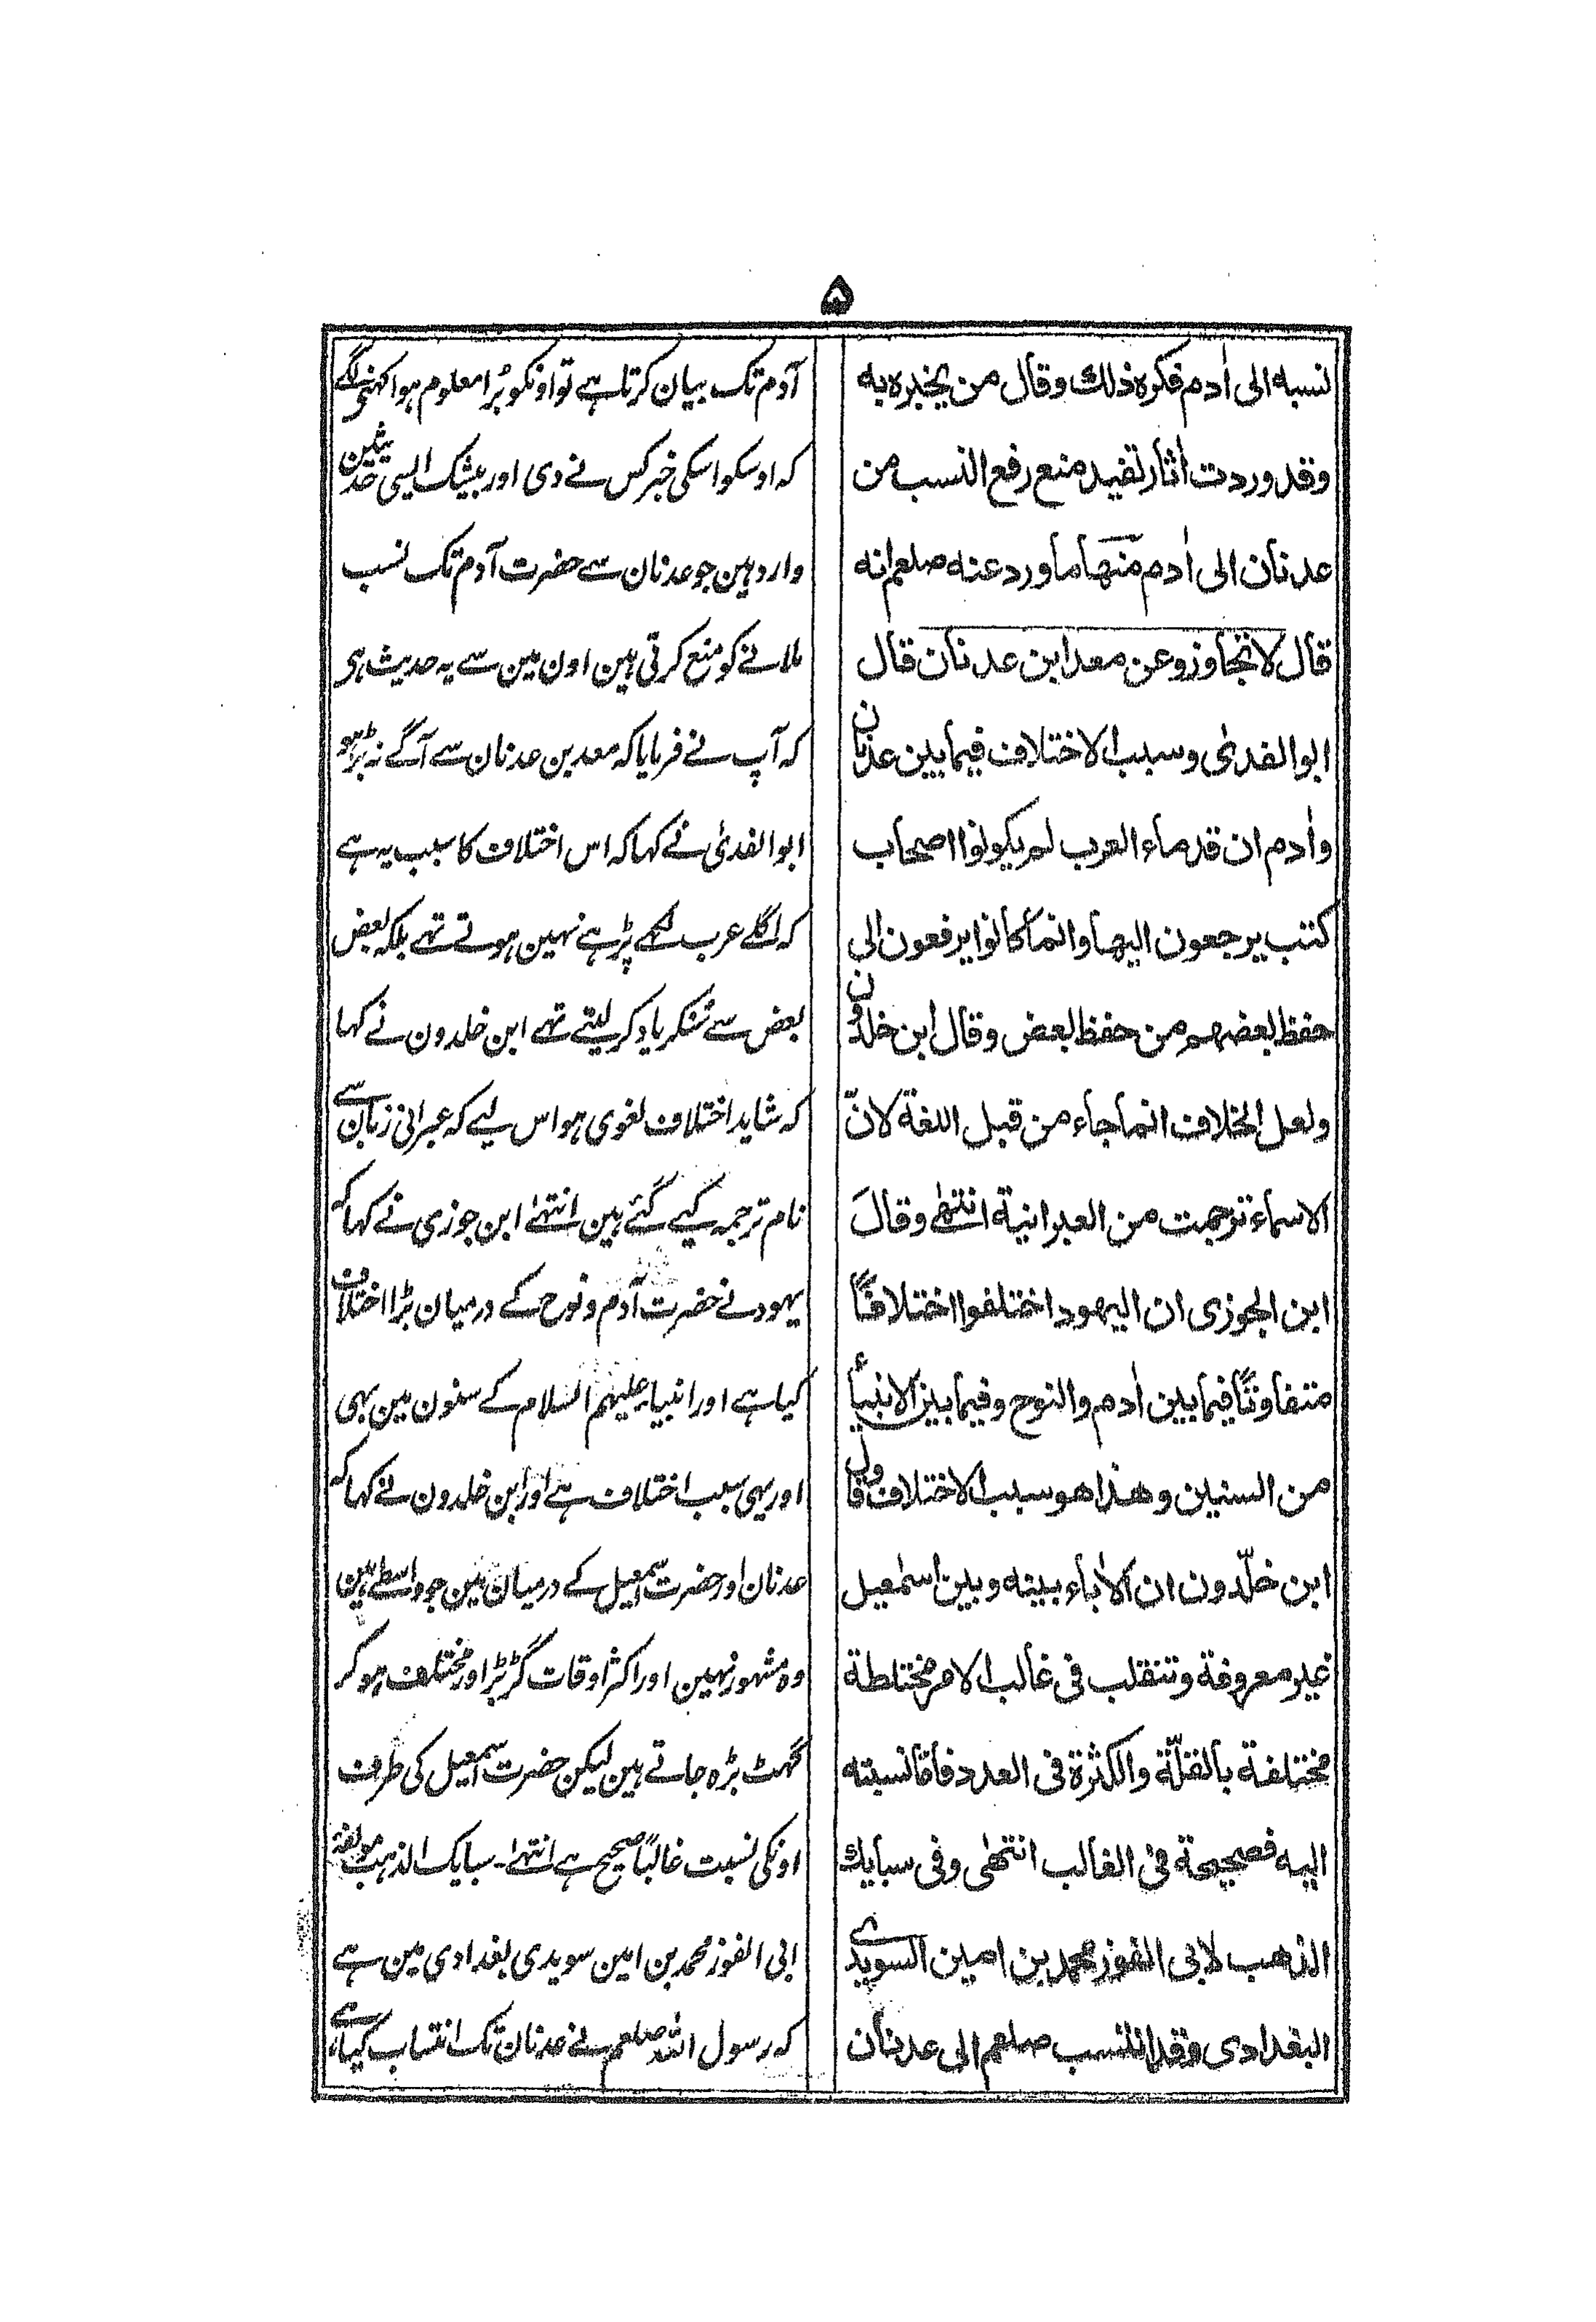 ۵
نسبه الى اٰدم فكره ذلك وقال من يخبره به
وقد وردت اٰثار تفيد منع رفع النسب من
عدنان الى اٰدم منها ما ورد عنه صلعم انه
قال لا تجاوزو عن معد ابن عدنان قال
ابو الفدىٰ وسبب الاختلاف فيما بين عدنان
واٰدم ان قدماء العرب لم يكونوا اصحاب
كتب يرجعون اليها وانما كانوا يرفعون الى
حفظ بعضهم من حفظ بعض وقال ابن خلدون
ولعل الخلاف انما جاء من قبل اللغة لانّ
الاسماء ترجمت من العبرانية انتهٰى وقالَ
ابن الجوزى ان اليهود اختلفوا اختلافًا
متفاوتًا فيما بين اٰدم والنوح وفيما بين الانبياء
من السنين وهذا هو سبب الاختلاف قال
ابن خلّدون ان الاٰباء بينه وبين اسمٰعيل
غير معروفة وتنقلب فى غالب الامر مختلطة
مختلفة بالقلّة والكثرة فى العدد فاما نسبته
اليه فصحيحة فى الغالب انتهٰى وفى سبايك
الذهب لابى الفوز محمد بن امين السويدى
البغدادى وقد انتسب صلعم الى عدنان
آدم تک بیان کرتا ہے تو اونکو بُرا معلوم ہوا کہنے لگے
کہ اوسکو اسکی خبر کس نے دی اور بیشک ایسی حدیثین
وارد ہین جو عدنان سے حضرت آدم تک نسب
ملانے کو منع کرتی ہین اون مین سے یہ حدیث ہی
کہ آپ نے فرمایا کہ معد بن عدنان سے آگے نہ بڑہو
ابو الفدیٰ نے کہا کہ اس اختلاف کا سبب یہ ہے
کہ اگلے عرب لکھے پڑہے نہین ہوتے تھے بلکہ بعض
بعض سے سُنکر یاد کر لیتے تھے ابن خلدون نے کہا
کہ شاید اختلاف لغوی ہو اس لیے کہ عبرانی زبان سے
نام ترجمہ کیے گئے ہین انتہٰے ابن جوزی نے کہا کہ
یہود نے حضرت آدم و نوح کے درمیان بڑا اختلاف
کیا ہے اور انبیاء علیہم السلام کے سنون مین بہی
اور یہی سبب اختلاف ہے اور ابن خلدون نے کہا کہ
عدنان اور حضرت اسمٰعیل کے درمیان مین جو واسطے ہین
وہ مشہور نہین اور اکثر اوقات گڑبڑ اور مختلف ہو کر
گہٹ بڑہ جاتے ہین لیکن حضرت اسمٰعیل کی طرف
اونکی نسبت غالبًا صحیح ہے انتہےٰ۔ سبایک الذہب مولفہ
ابی الفوز محمد بن امین سویدی بغدادی مین ہے
کہ رسول اللہ صلعم نے عدنان تک انتساب کیا ہے